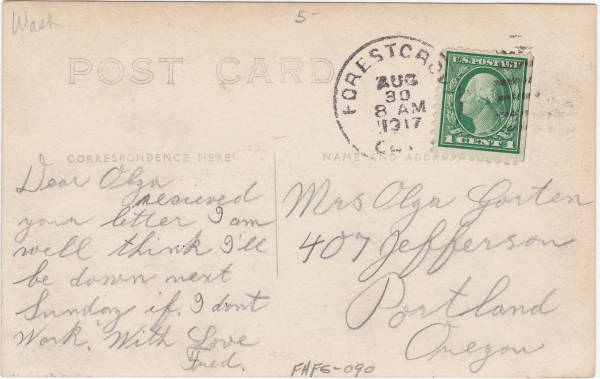 Wash
5-
POST CARD
FORESTGRO
AUG
30
8 AM
1917
U.S. POSTAGE
1 CENT 1
CORRESPONDENCE HERE
NAME AND ADDRESS HERE
Dear Olga
resieved
your letter I am
well think I'll
be down next
Sunday if I dont
Work. With Love
Fred.
Mrs Olga Gorten
407 Jefferson
Portland
Oregon
FHFG-090